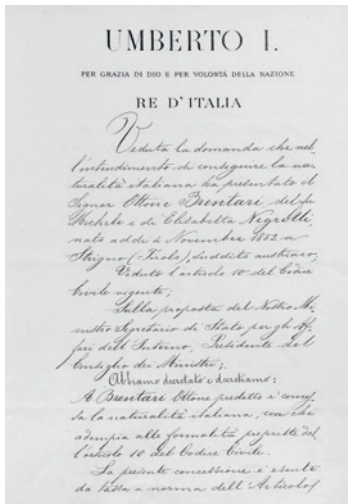 UMBERTO I.
PER GRAZIA DI DIO E PER VOLONTÀ DELLA NAZIONE
RE D'ITALIA
Veduta la domanda che nel-
l'intendimento di conseguire la na-
turalità italiana ha presentato il
Signor Ottone Brentari, del fu
Michele e di Elisabetta Negrelli,
nato addì 4 Novembre 1852 a
Strigno (Tirolo), suddito austriaco;
Veduto l'articolo 10 del Codice
Civile vigente;
Sulla proposta del Nostro Mi-
nistro Segretario di Stato per gli Af-
fari dell'Interno, Presidente del
Consiglio dei Ministri;
Abbiamo decretato e decretiamo:
A Brentari Ottone predetto è conces-
sa la naturalità italiana, con che
adempia alle formalità prescritte dal-
l'articolo 10 del Codice Civile.
La presente concessione è esente
da tassa a norma dell'Articolo